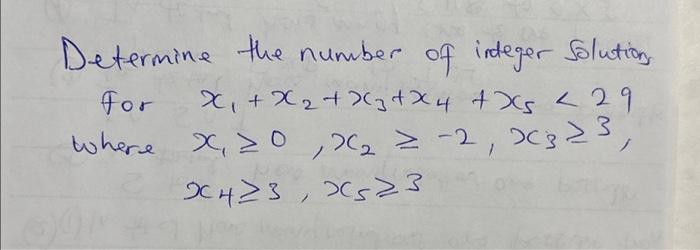 Determine the number of integer Solutions
for x₁ + x₂ + x₃ + x₄ + x₅ < 29
where x₁ ≥ 0 , x₂ ≥ -2, x₃ ≥ 3,
x₄ ≥ 3 , x₅ ≥ 3